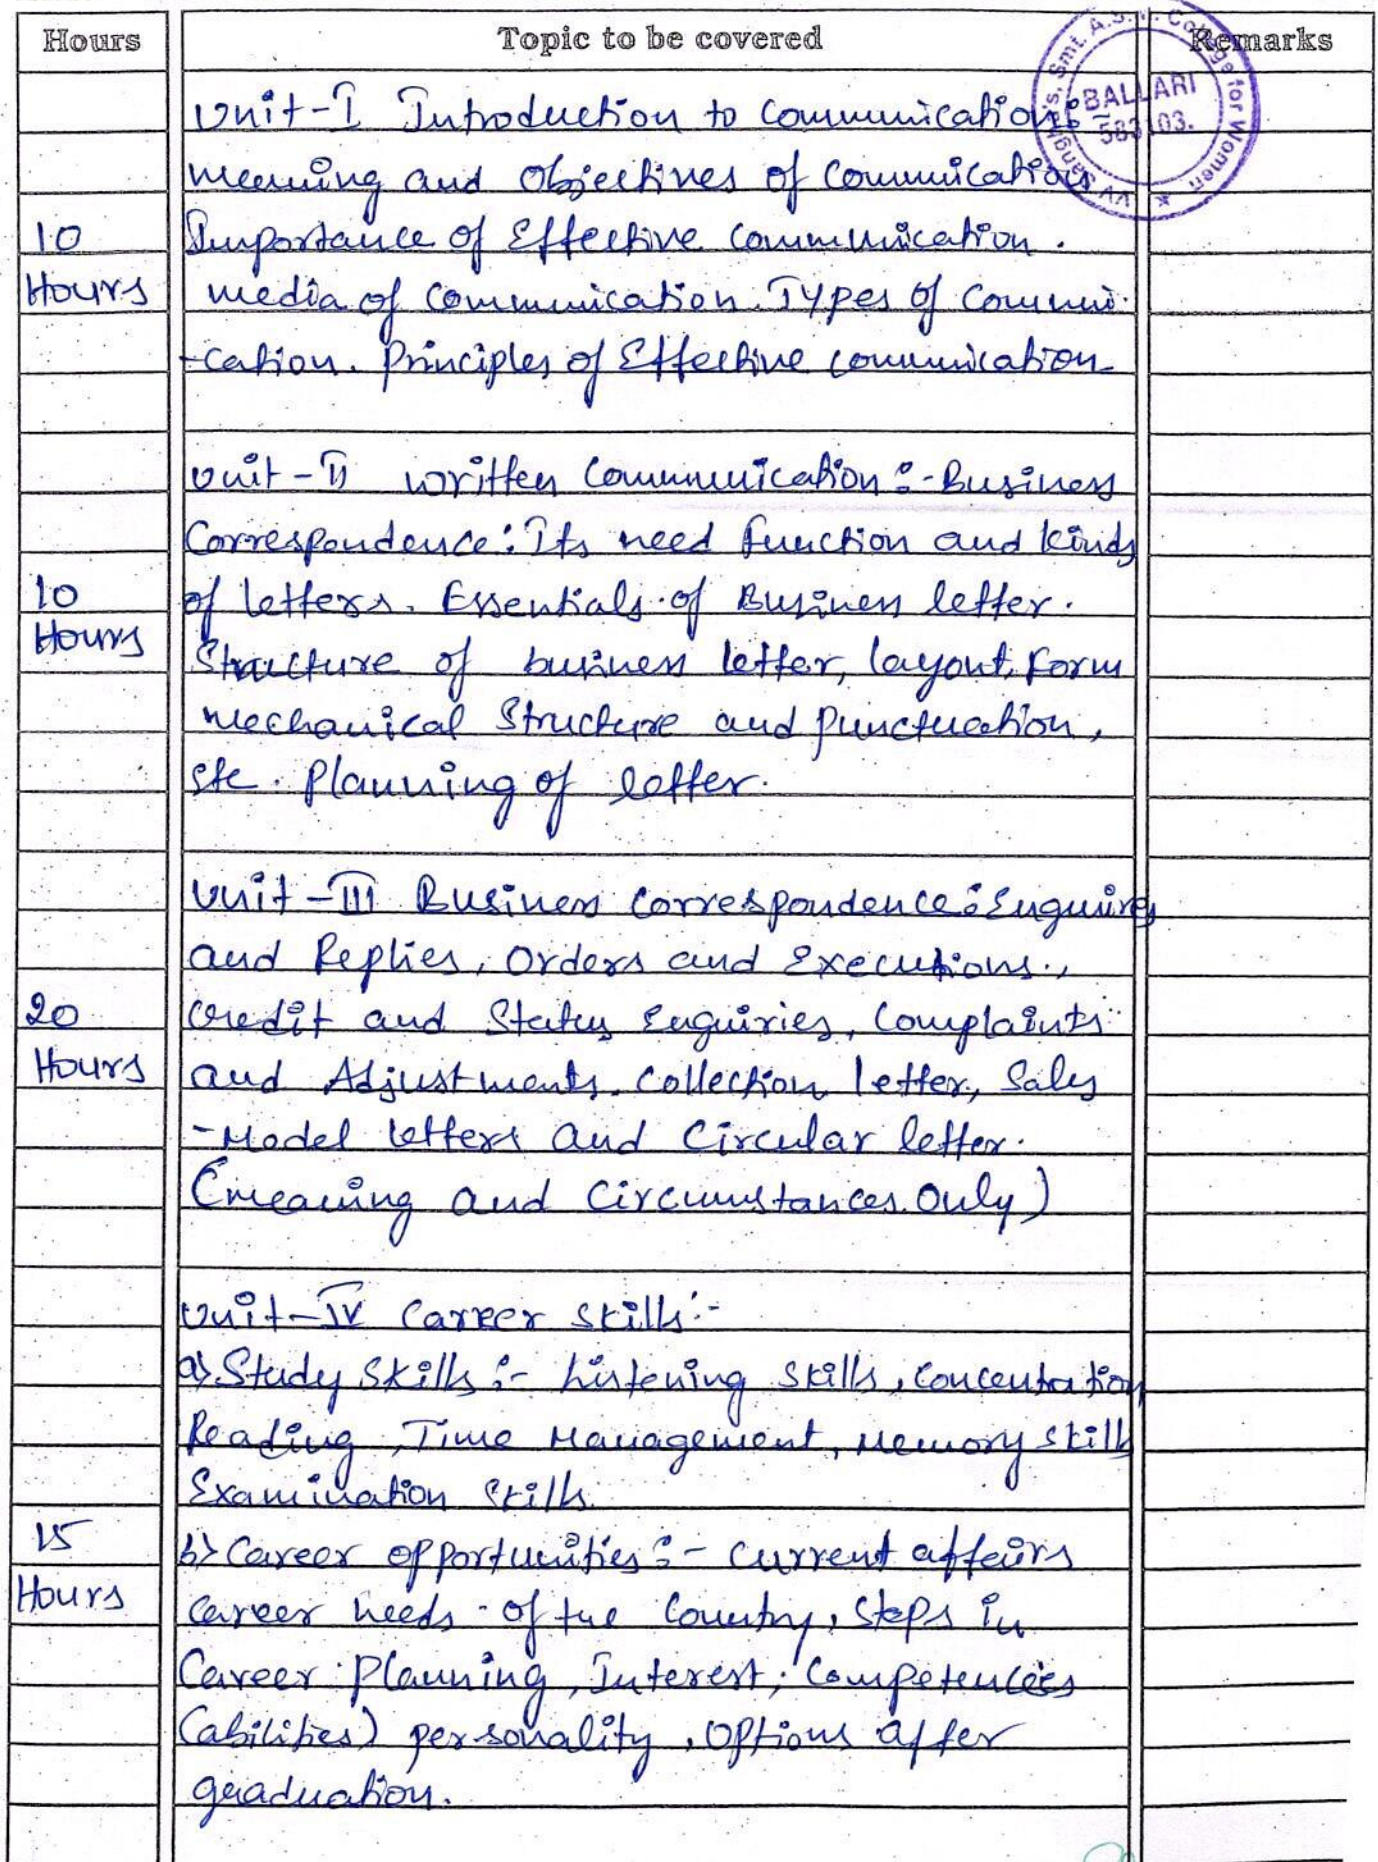 Hours Topic to be covered Remarks
Smt. A.S.M. College for Women
BALLARI
583103.
Unit-I Introduction to Communication:
meaning and Objectives of Communication
Importance of Effective Communication.
10
Hours media of Communication. Types of Communi
-cation. Principles of Effective communication
Unit-II written Communication:-Business
Correspondence: Its need function and kinds
10 of letters. Essentials of Business letter.
Hours Structure of business letter, layout, Form
mechanical Structure and punctuation,
etc. Planning of letter.
Unit-III Business Correspondence: Enquires
and Replies, Orders and Executions.,
20 Credit and Status Enquiries, Complaints
Hours and Adjustments. Collection letter, Sales
-Model letters and Circular letter.
(meaning and Circumstances Only)
Unit-IV Career Skills:-
a) Study Skills:- Listening Skills, Concentration
Reading, Time Management, Memory Skill
Examination Skills.
15
Hours b) Career opportunities:- Current affairs
career needs of the Country, Steps in
Career Planning, Interest, Competencies
(abilities) personality, Options after
graduation.